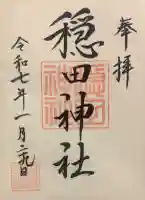 奉拝
穏田神社
令和七年一月二九日